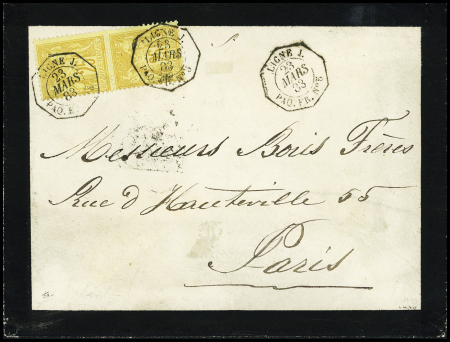 LIGNE J.
23
MARS
83
PAQ. F
LIGNE J.
23
MARS
83
PAQ. FR. N° 6
LIGNE J.
23
MARS
83
PAQ. FR. N° 6
Messieurs Boris Frères
Rue d'Hauteville 55
Paris